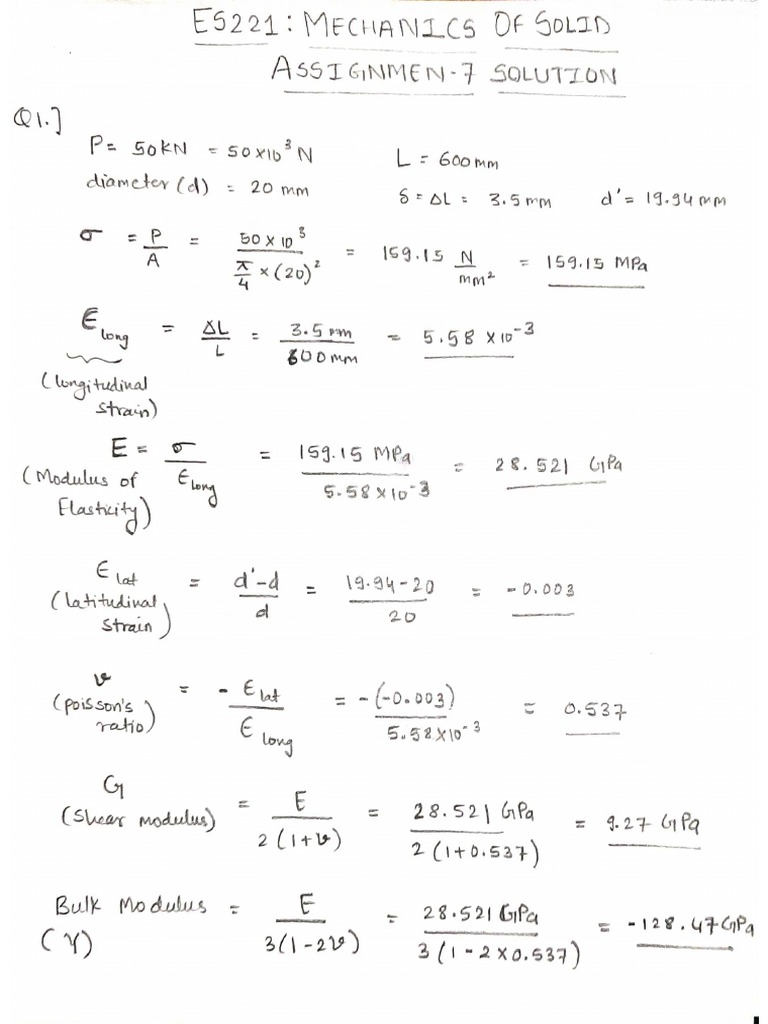 ES221: MECHANICS OF SOLID
ASSIGNMEN-7 SOLUTION
Q1.]
P = 50KN = 50×10³ N    L = 600mm
diameter (d) = 20 mm    δ = ΔL = 3.5mm    d' = 19.94mm
σ = P/A = (50×10³)/(π/4 ×(20)²) = 159.15 N/mm² = 159.15 MPa
Є long = ΔL/L = 3.5mm/600mm = 5.58 ×10⁻³
(longitudinal
strain)
E = σ/Є long = 159.15 MPa/5.58×10⁻³ = 28.521 GPa
(Modulus of
Elasticity)
Є lat = (d'-d)/d = (19.94-20)/20 = -0.003
(latitudinal
strain)
ν = -Є lat/Є long = -(-0.003)/5.58×10⁻³ = 0.537
(poisson's
ratio)
G = E/2(1+ν) = 28.521 GPa/2(1+0.537) = 9.27 GPa
(Shear modulus)
Bulk Modulus = E/3(1-2ν) = 28.521 GPa/3(1-2×0.537) = -128.47GPa
(γ)